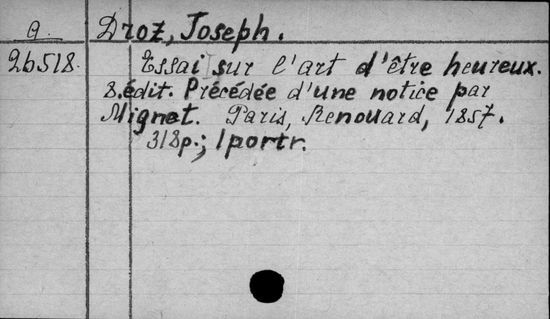 a. Droz, Joseph.
26518. Essai sur l'art d'être heureux.
8.édit. Précédée d'une notice par
Mignet. Paris, Renouard, 1857.
318p.; 1portr.